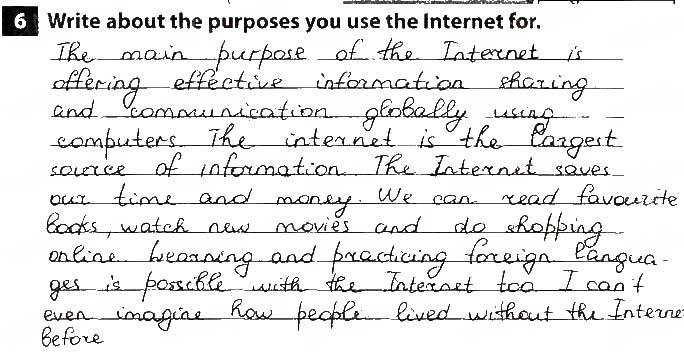 6 Write about the purposes you use the Internet for.
The main purpose of the Internet is
offering effective information sharing
and communication globally using
computers. The internet is the largest
source of information. The Internet saves
our time and money. We can read favourite
books, watch new movies and do shopping
online. Learning and practicing foreign langua-
ges is possible with the Internet too. I can't
even imagine how people lived without the Interne
before